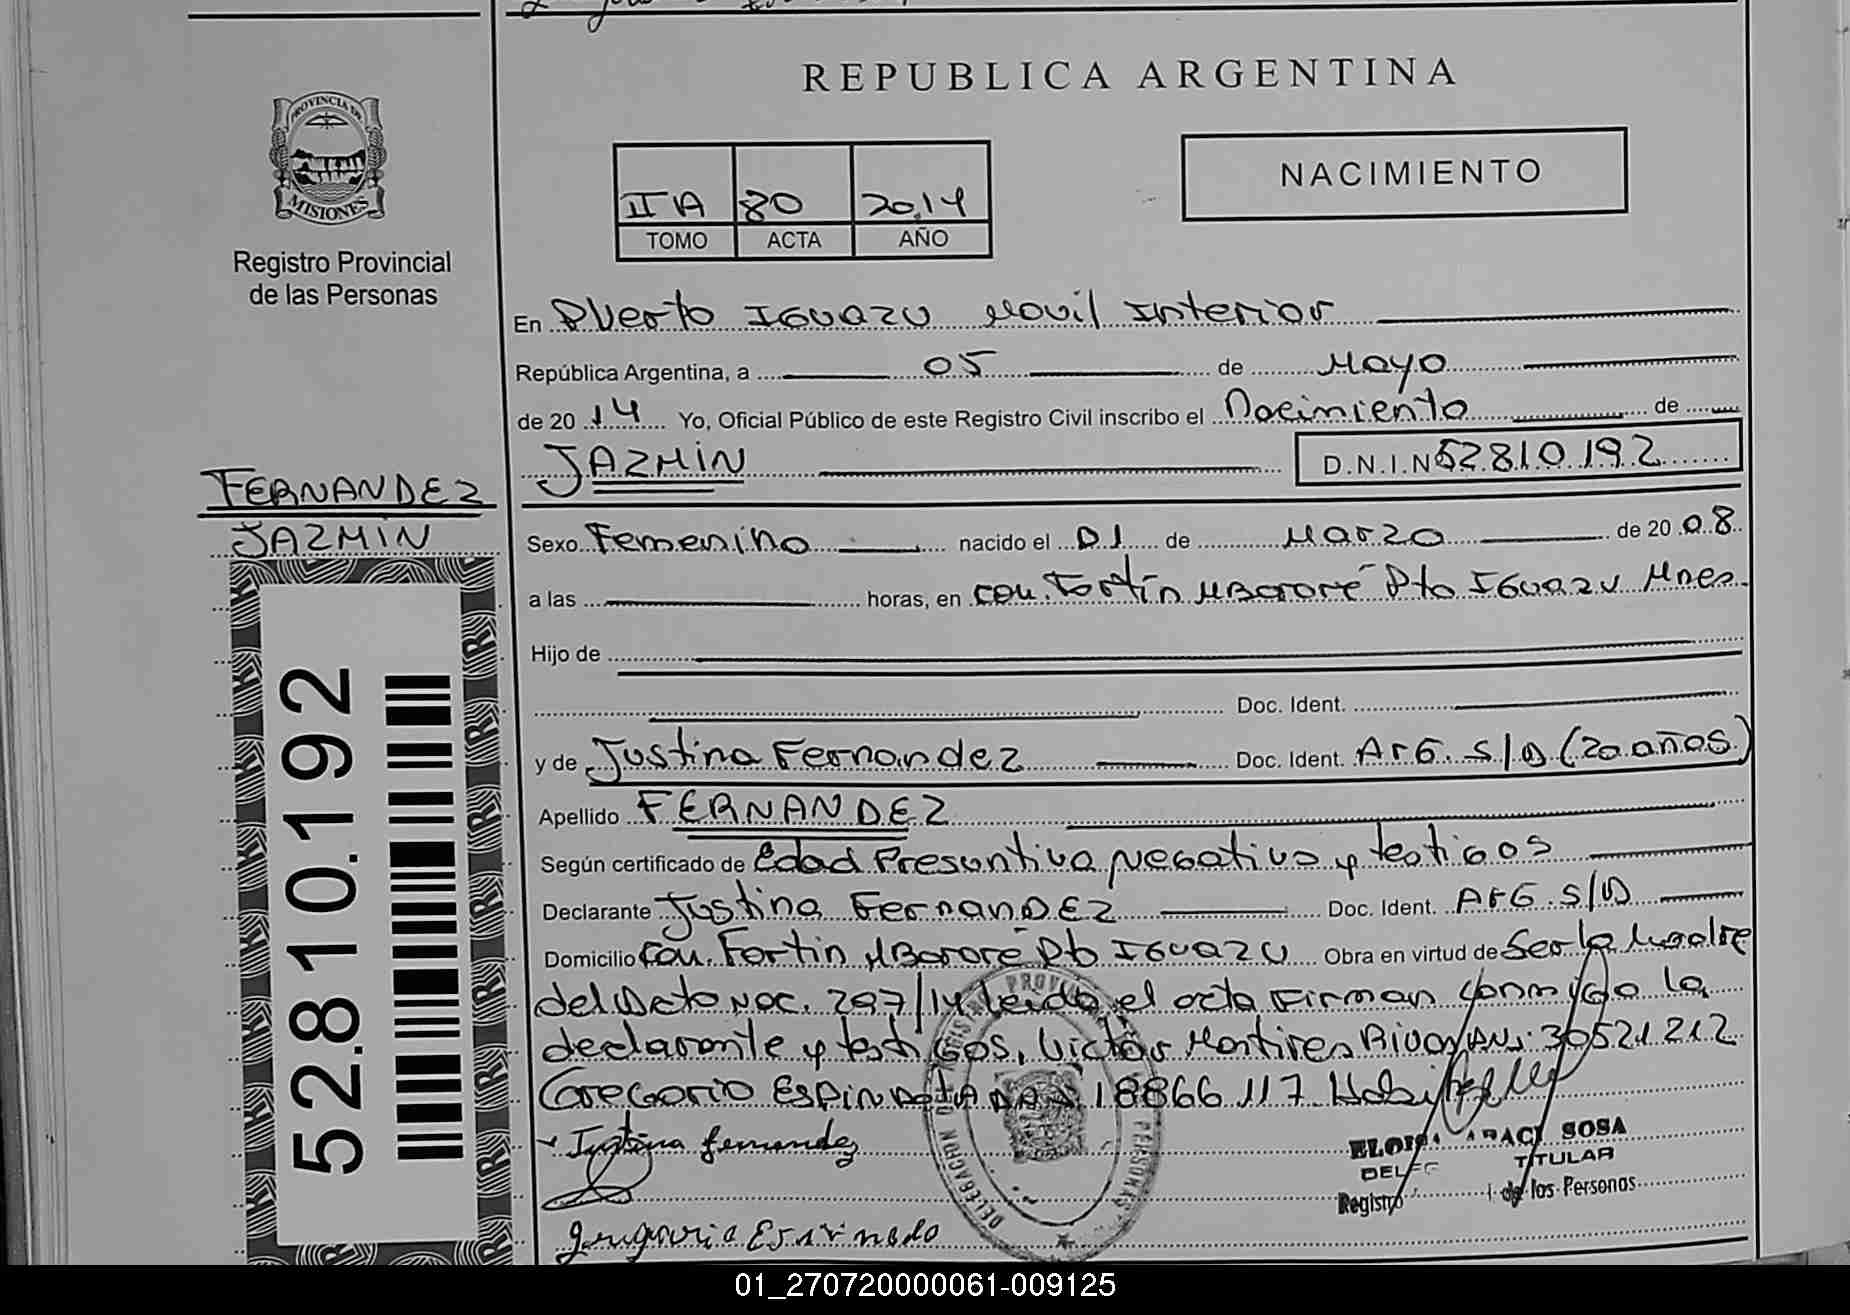 REPUBLICA ARGENTINA
PROVINCIA DE
MISIONES
Registro Provincial
de las Personas
IIA 80 2014
TOMO ACTA AÑO
NACIMIENTO
En Puerto Iguazu Movil Interior
República Argentina, a 05 de Mayo
de 2014 Yo, Oficial Público de este Registro Civil inscribo el Nacimiento de
JAZMIN D.N.I.N 52810192
FERNANDEZ
JAZMIN
52.810.192
Sexo Femenino nacido el 01 de Marzo de 2008
a las horas, en Com. Fortín Mbororé Pto Iguazu Mnes
Hijo de
Doc. Ident.
y de Justina Fernandez Doc. Ident. Arg. S/D (20 años)
Apellido FERNANDEZ
Según certificado de Edad Presuntiva negativa y testigos
Declarante Justina FernanDEZ Doc. Ident. Arg. S/D
Domicilio Com. Fortin Mbororé Pto Iguazu Obra en virtud de Ser la Madre
del Dcto Nac. 297/14 leida el acta Firman conmigo la
declarante y testigos, Victor Martires Rivas DNI: 30521212
Gregorio Espindola 18866117
Justina fernandez
ELOISA ARACI SOSA
TITULAR
Registro de las Personas
DELEGACION
PERSONAS
01_270720000061-009125